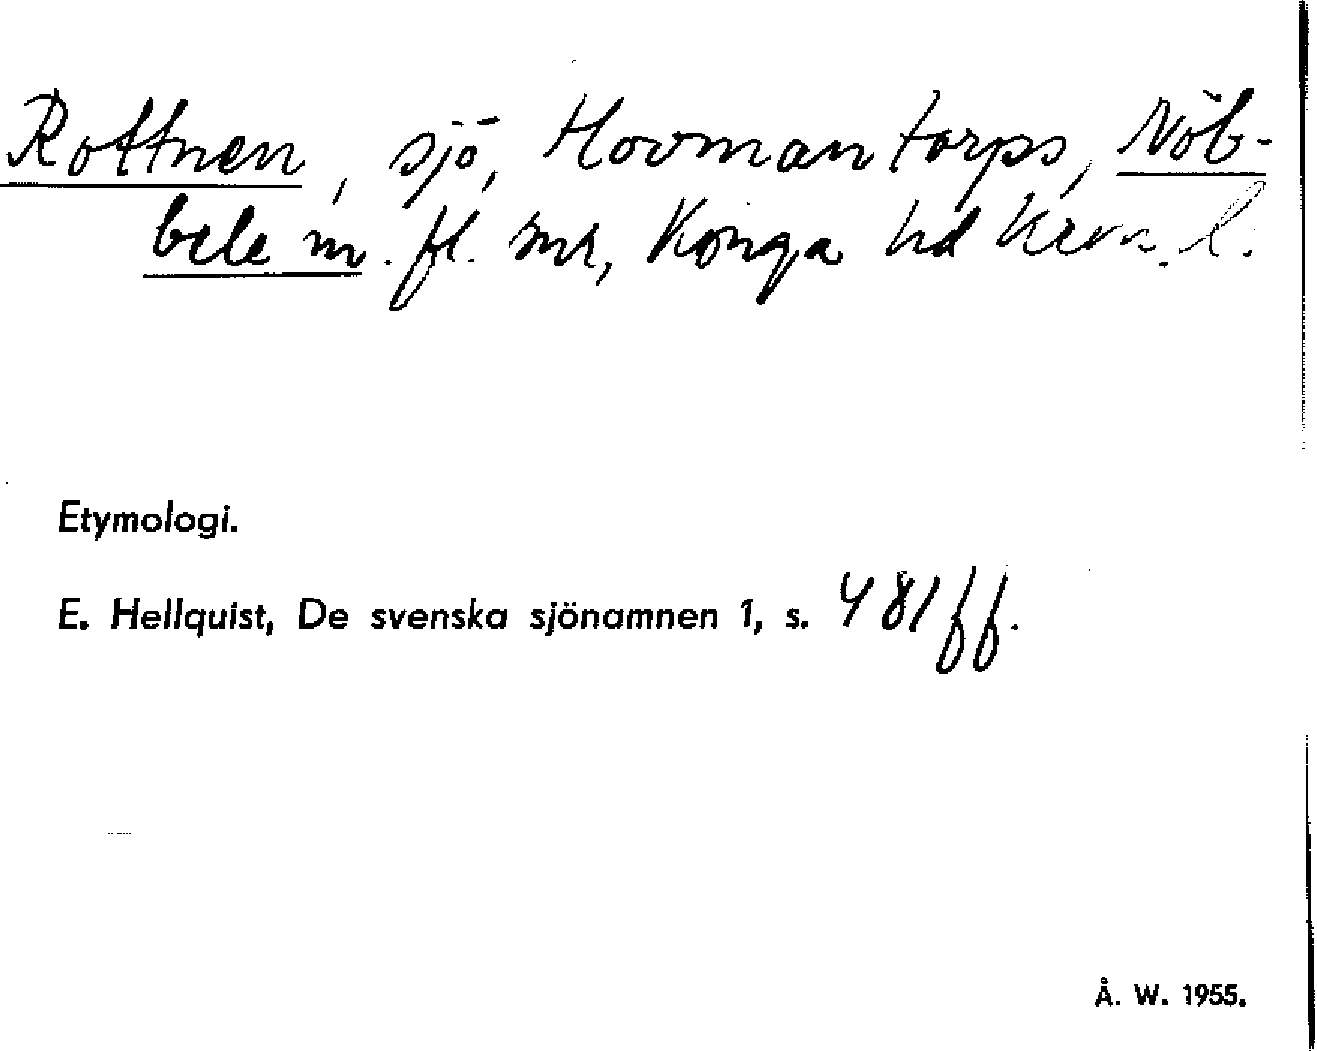 Rottnen, sjö, Hovmantorps, Nöb-
bele m. fl. snr, Konga hd Kron. l.
Etymologi.
E. Hellquist, De svenska sjönamnen 1, s. 481 ff.
Å. W. 1955.